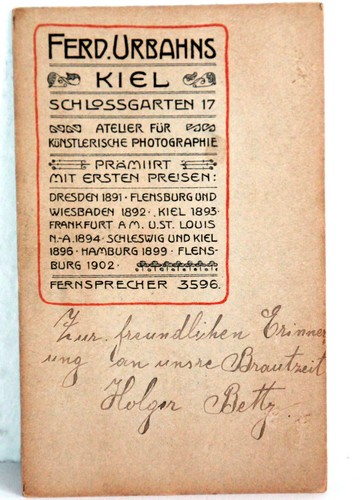 FERD. URBAHNS
KIEL
SCHLOSSGARTEN 17
ATELIER FÜR
KÜNSTLERISCHE PHOTOGRAPHIE
PRÄMIIRT
MIT ERSTEN PREISEN:
DRESDEN 1891 · FLENSBURG UND
WIESBADEN 1892 · KIEL 1893 ·
FRANKFURT A M. U. ST. LOUIS
N.-A. 1894 · SCHLESWIG UND KIEL
1896 · HAMBURG 1899 · FLENS-
BURG 1902 ·
FERNSPRECHER 3596.
Zur freundlichen Erinner
ung an unsre Brautzeit
Holger Bettz